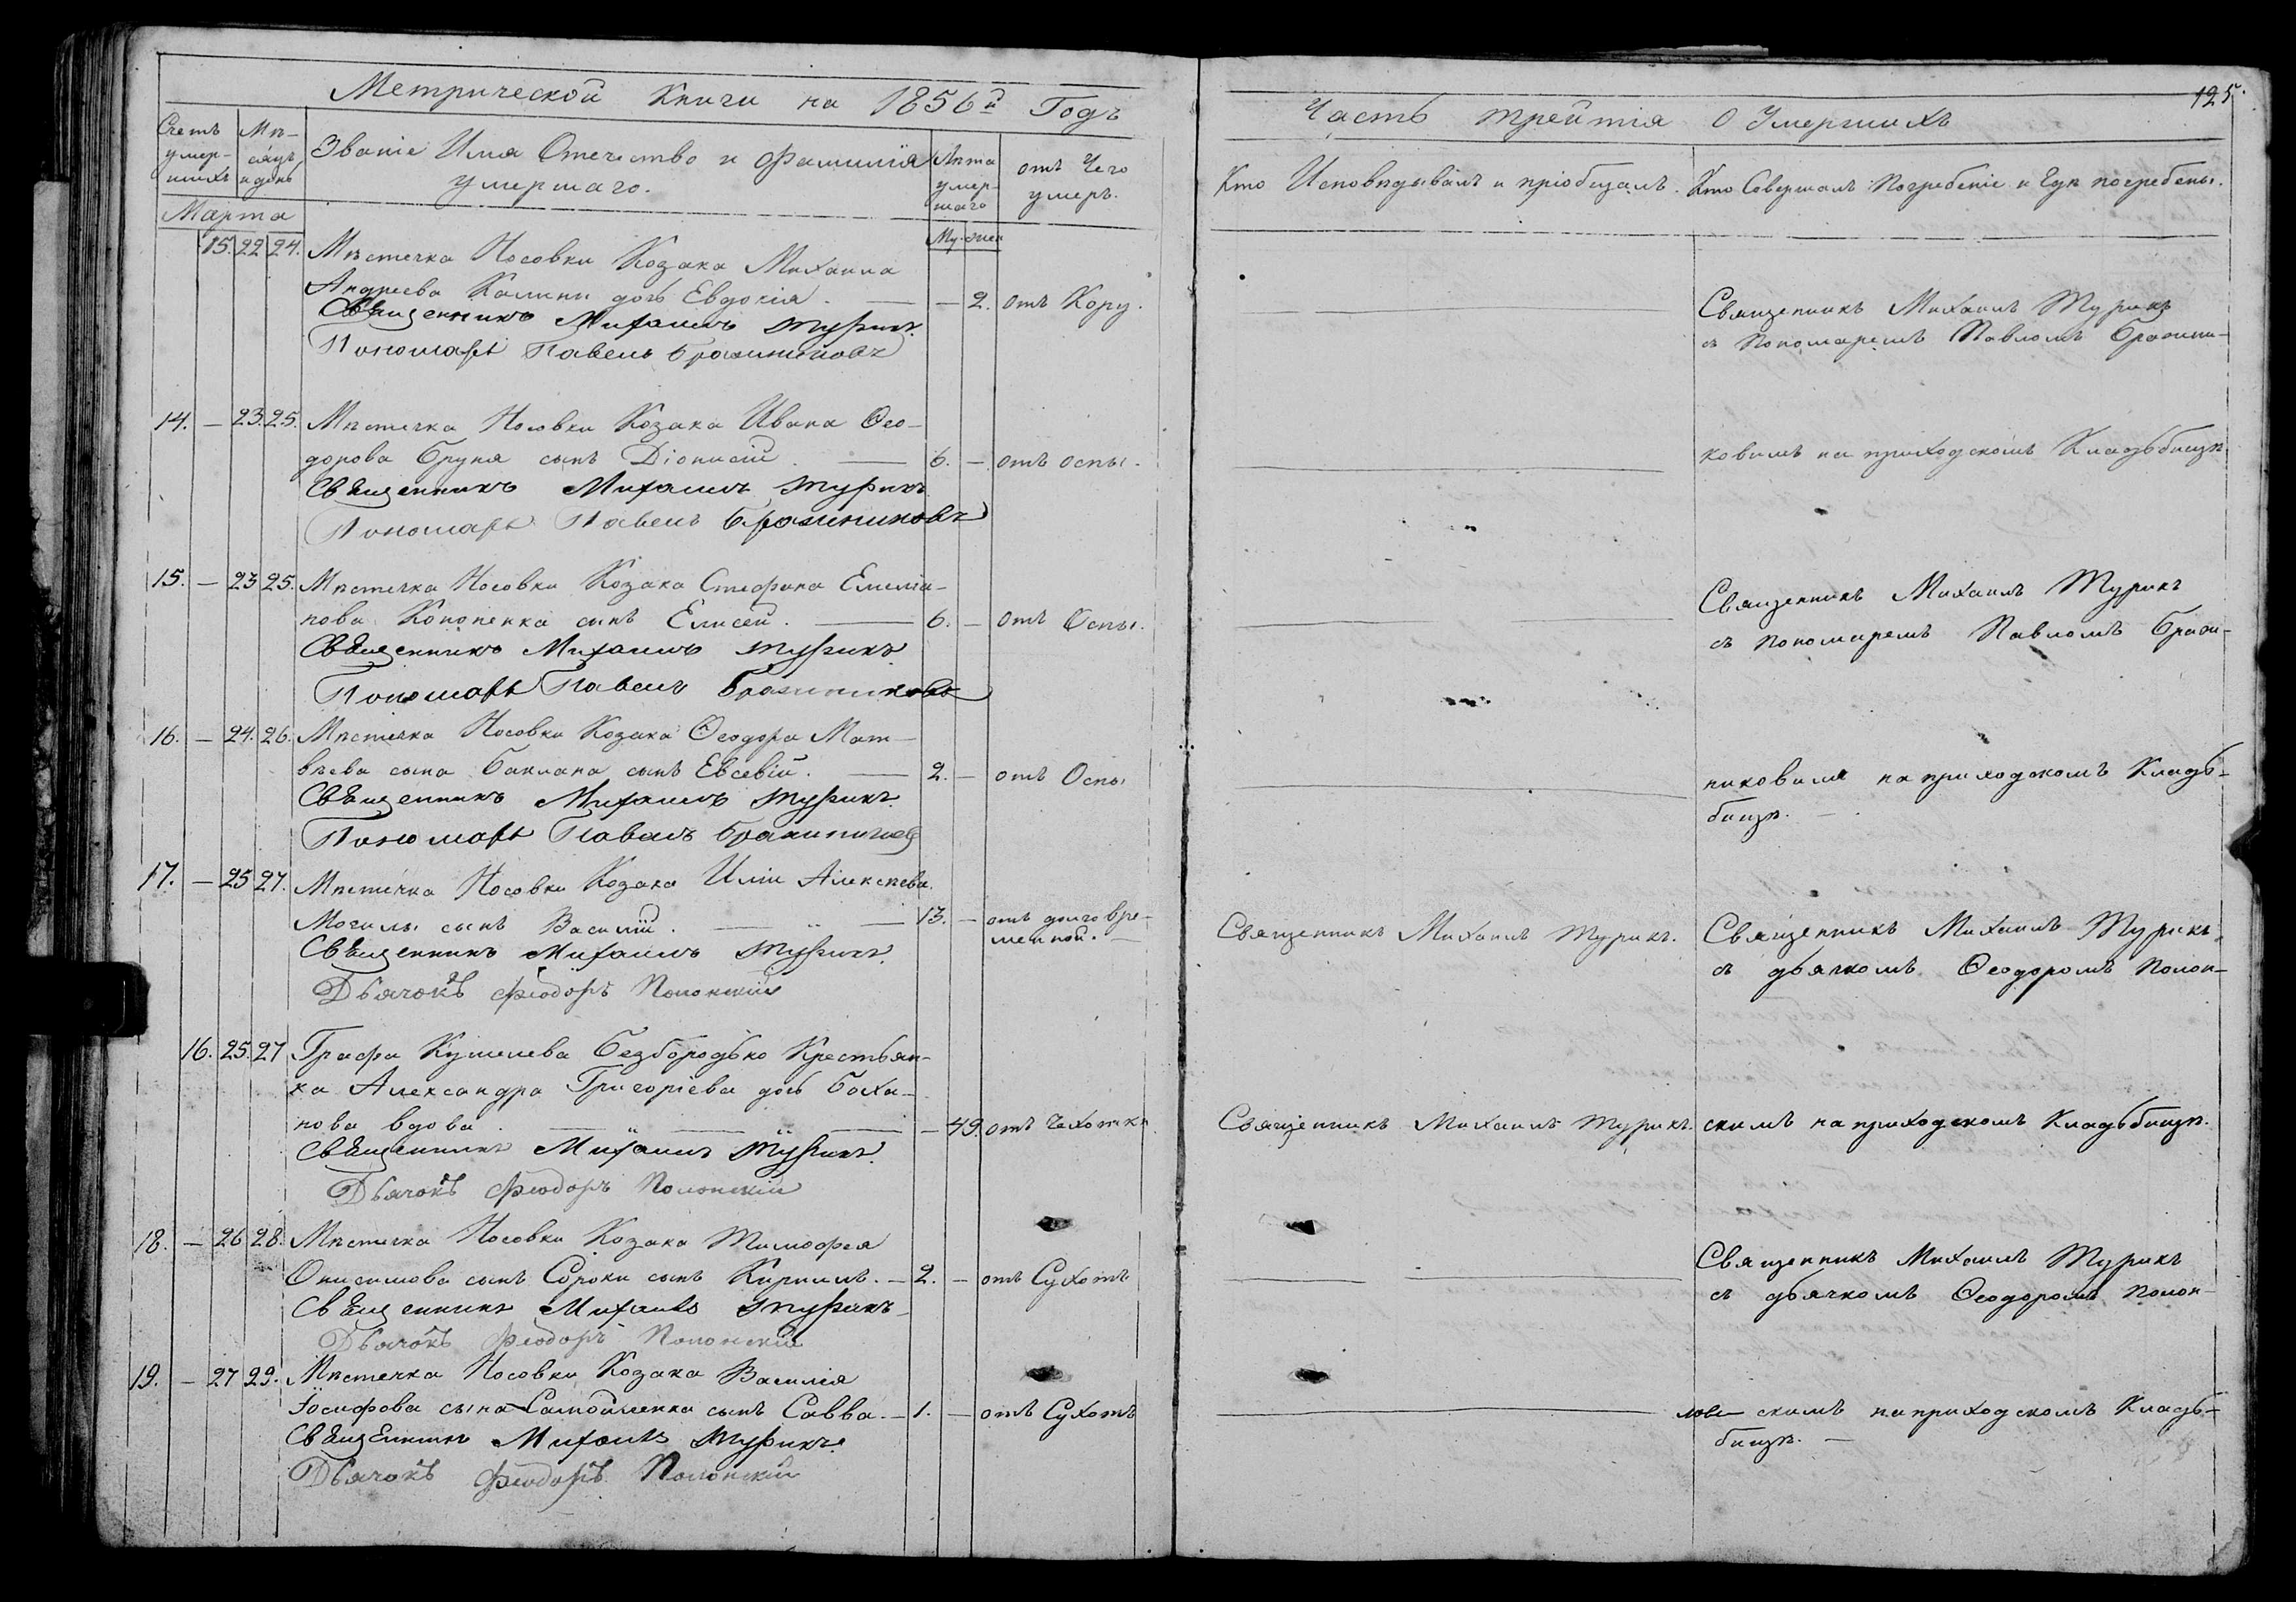 Метрической Книги на 1856й Годъ
Счетъ умер- шихъ
Мѣ- сяцъ и день
Званіе Имя Отечество и Фамилія умершаго.
Лѣта умер- шаго
отъ Чего умеръ.
Марта
Му. жен
15. 22 24. Мѣстечка Носовки Козака Михаила
Андреева Калини дочь Евдокія. — — 2. отъ Кору.
Священникъ Михаилъ Турикъ.
Пономарь Павелъ Бражниковъ
14. — 23. 25. Мѣстечка Носовки Козака Ивана Ѳео-
дорова Бруня сынъ Діонисій. — 6. — отъ оспы.
Священникъ Михаилъ Турикъ
Пономарь Павелъ Бражниковъ
15. — 23 25. Мѣстечка Носовки Козака Стефана Емеліа-
нова Кононенка сынъ Елисей. — 6. — отъ Оспы.
Священникъ Михаилъ Турикъ
Пономарь Павелъ Бражниковъ
16. — 24. 26. Мѣстечка Носовки Козака Ѳеодора Мат-
вѣева сына Баклана сынъ Евсевій. — 2. — отъ Оспы
Священникъ Михаилъ Турикъ
Пономарь Павелъ
17. — 25 27. Мѣстечка Носовки Козака Иліи Алексѣева
Могилы сынъ Василій. — 13. — отъ долговре-
менной. —
Священникъ Михаилъ Турикъ.
Дьячокъ Феодоръ Полонскій
16. 25. 27 Графа Кушелева Безбородько Крестьян-
ка Александра Григоріева дочь Боха-
нова вдова. — — 49. отъ Чахотки
Священникъ Михаилъ Турикъ.
Дьячокъ Феодоръ Полонскій
18. — 26 28. Мѣстечка Носовки Козака Тимофея
Онисимова сынъ Сороки сынъ Кириллъ. — 2. — отъ Сухотъ
Священникъ Михаилъ Турикъ
Дьячокъ Феодоръ Полонскій
19. — 27 29. Мѣстечка Носовки Козака Василія
Іосифова сына Самойленка сынъ Савва. — 1. — отъ Сухотъ
Священникъ Михаилъ Турикъ
Дьячокъ Феодоръ Полонскій
125.
Часть трейтія О Умершихъ
Кто Исповѣдывалъ и пріобщалъ.
Кто Совершалъ Погребеніе и Гдѣ погребены.
Священникъ Михаилъ Турикъ
съ Пономаремъ Павломъ Бражни-
ковымъ на приходскомъ Кладьбищѣ.
Священникъ Михаилъ Турикъ
съ Пономаремъ Павломъ Бражи-
никовымъ на приходскомъ Кладь-
бищѣ. —
Священникъ Михаилъ Турикъ.
Священникъ Михаилъ Турикъ
съ дьячкомъ Ѳеодоромъ Полон-
Священникъ Михаилъ Турикъ.
скимъ на приходскомъ Кладьбищѣ.
Священникъ Михаилъ Турикъ
съ дьячкомъ Ѳеодоромъ Полон-
скимъ на приходскомъ Кладь-
бищѣ. —